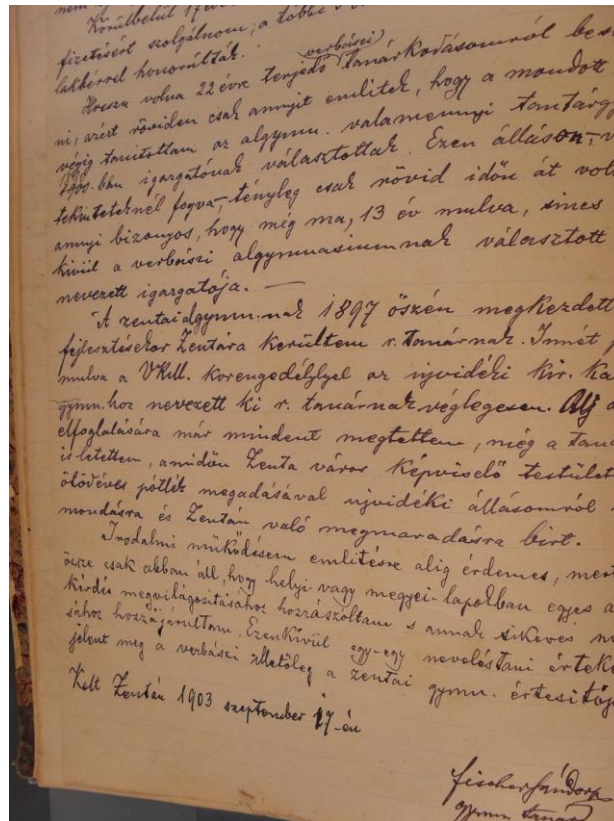 Körülbelül 17 év
fizetésért szolgálnom; a többi
lakbérrel honorálták.
verbászi
Hosszu volna 22 évre terjedő tanárkodásomról bes
ni, azért röviden csak annyit emlitek, hogy a mondott
végig tanitottam az algymn. valamennyi tantárgy
1890.-ban igazgatónak választottak. Ezen álláson, v
tekinteteknél fogva, tényleg csak rövid időn át vol
annyi bizonyos, hogy még ma, 13 év mulva, sincs
kivül a verbászi algymnasiumnak választott
nevezett igazgatója. —
A zentai algymn.nak 1897 őszén megkezdett
fejlesztésekor Zentára kerültem r. tanárnak. Innét
mulva a VKM. korengedéllyel az ujvidéki kir. ka
gymn.hoz nevezett ki r. tanárnak véglegesen. Uj
elfoglalására már mindent megtettem, még a tan
is letettem, amidőn Zenta város képviselő testület
ötödéves pótlék megadásával ujvidéki állásomról
mondásra és Zentán való megmaradásra birt.
Irodalmi működésem emlitésre alig érdemes, mert
össze csak abban áll, hogy helyi- vagy megyei-lapokban egyes a
kérdés megvilágositásához hozzászóltam s annak sikeres m
sához hozzájárultam. Ezenkivül egy-egy neveléstani érteke
jelent meg a verbászi illetőleg a zentai gymn. értesitőj
Kelt Zentán 1903 szeptember 17-én
Fischer Sándor
gymn. taná